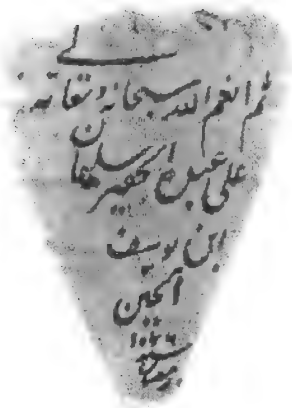 ثم انعم الله سبحانه وتعالى
على عبده الحقير سليمان
ابن يوسف